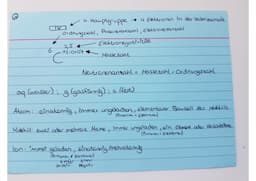 IV → 4. Hauptgruppe → 4 Elektronen in der Valenzschale
Ordnungszahl, Protonenanzahl, Elektronenanzahl
6 2,5 → Elektronegativität
C 12,0107 → Massezahl
Neutronenanzahl = Massezahl - Ordnungszahl
aq (wasser) ; g (gasförmig) ; s (fest)
Atom: einatomig, immer ungeladen, elementarer Baustein des Moleküls
(Protonen = Elektronen)
Molekül: zwei oder mehrere Atome, immer ungeladen, ein Element oder Verschiedene
(Protonen = Elektronen)
Ion: immer geladen, einatomig/mehratomig
(Protonen ≠ Elektronen)